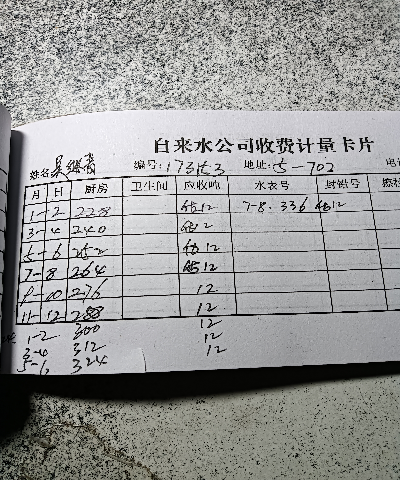 自来水公司收费计量卡片
姓名 编号: 地址: 5-702 电话
月 日 厨房 卫生间 应收吨 水表号 封铅号
1-2 228 12 7-8.336 12
3-4 240 12
5-6 252 12
7-8 264 12
9-10 276 12
11-12 288 12
1-2 300 12
3-4 312 12
5-6 324 12